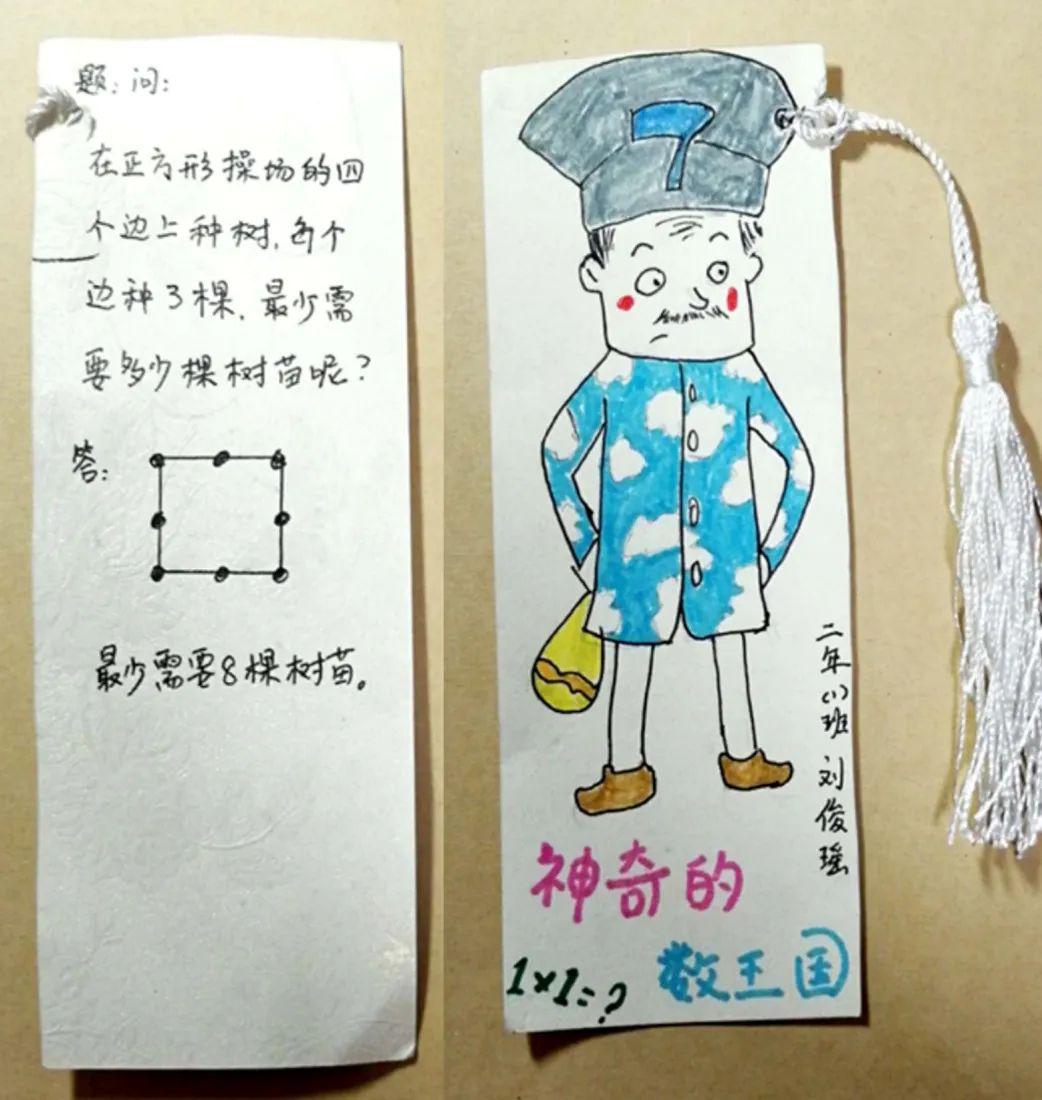 题:问:
在正方形操场的四
个边上种树,每个
边种3棵,最少需
要多少棵树苗呢?
答:
最少需要8棵树苗。
7
二年(1)班 刘俊瑶
神奇的
数王国
1×1=?